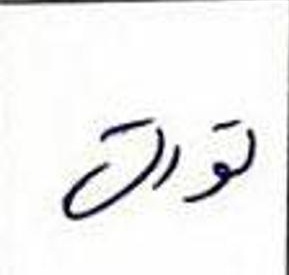 تورات